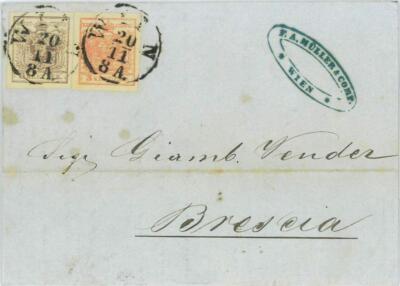 WIEN
20
11
8 A.
WIEN
20
11
8 A.
F. A. MÜLLER & COMP.
WIEN
Sigr Giamb. Vender
Brescia